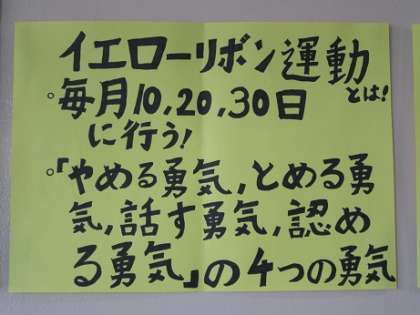 イエローリボン運動
とは!
。毎月10,20,30日
に行う!
。「やめる勇気,とめる勇
気,話す勇気,認め
る勇気」の4つの勇気